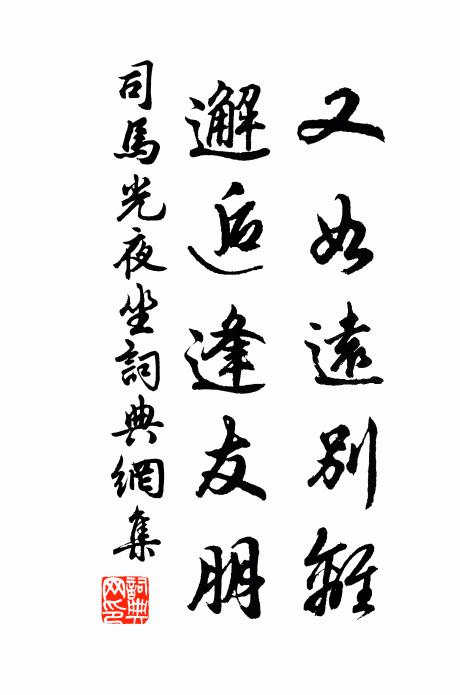 又如遠別離
邂逅逢友朋
司馬光夜坐詞典網集
詞典網印